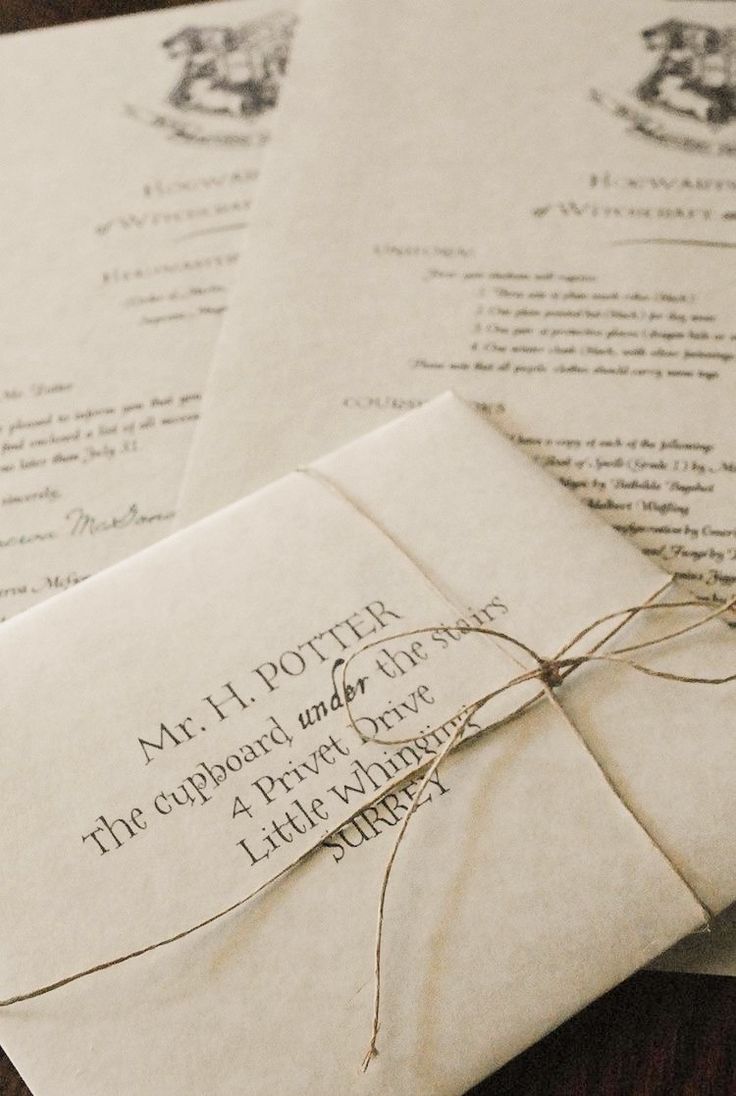 HOGWARTS
of WITCHCRAFT
HOGWARTS
Mr Potter
pleased to inform you that you
find enclosed a list of all
later than July 31.
sincerely,
HOGWARTS
of WITCHCRAFT
UNIFORM
First year students will require:
1. Three sets of plain work robes (black)
2. One plain pointed hat (black) for day wear
3. One pair of protective gloves (dragon hide or
4. One winter cloak (black, with silver fastenings
Please note that all pupils' clothes should carry name tags.
COURSE
have a copy of each of the following:
Book of Spells (Grade 1) by
by Bathilda Bagshot
Adalbert Waffling
by
and Fungi by
Mr. H. POTTER
The cupboard under the stairs
4 Privet Drive
Little Whinging
SURREY